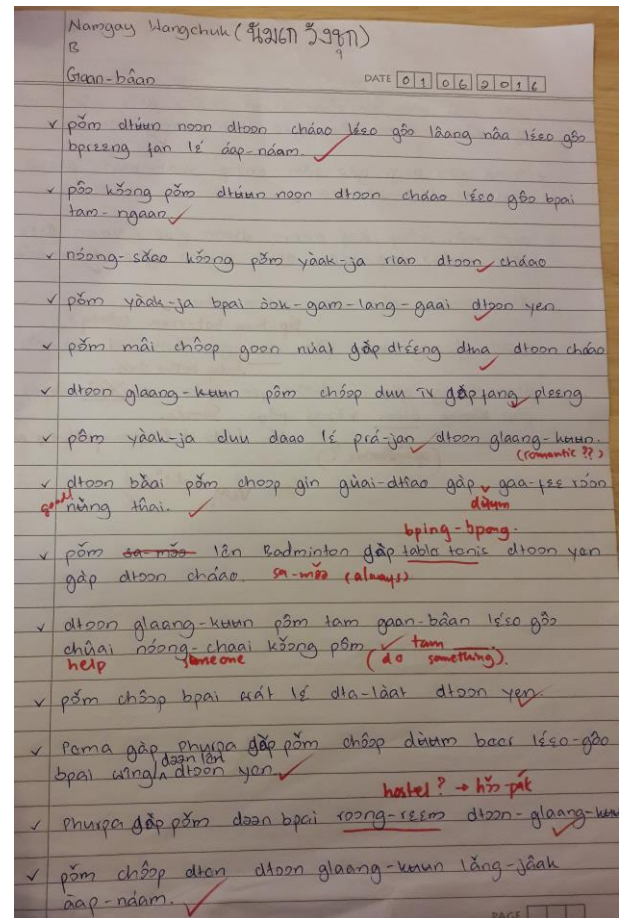 Namgay Wangchuk (นัมเก วังชุก)
B
Gaan-bâan DATE 0 1 0 6 2 0 1 6
✓ pǒm dtùun noon dtoon cháao léɛo gôo láang nâa léɛo gôo
bprɛɛng fan lɛ́ àap-náam. ✓
✓ pôo kǒong pǒm dtùun noon dtoon cháao léɛo gôo bpai
tam-ngaan ✓
✓ nóong-sǎao kǒong pǒm yàak-ja rian dtoon cháao
✓ pǒm yàak-ja bpai òok-gam-lang-gaai dtoon yen
✓ pǒm mâi chôop goon nùat gàp dtɛ́ɛng dtua dtoon cháao
✓ dtoon glaang-kuun pǒm chôop duu TV gàp fang pleeng
✓ pǒm yàak-ja duu daao lɛ́ prá-jan dtoon glaang-kuun.
(romantic ??)
✓ dtoon bàai pǒm choop gin gúai-dtiao gàp gaa-fɛɛ róon
dùum
good nùng tûai. ✓
bping-bpong.
✓ pǒm sa-mǒo lên Badminton gàp table tenis dtoon yen
gàp dtoon cháao. sa-mǒo (always)
✓ dtoon glaang-kuun pǒm tam gaan-bâan léɛo gôo
chûai nóong-chaai kǒong pǒm ✓ tam ___
help someone (do something).
✓ pǒm chôop bpai wát lɛ́ dta-làat dtoon yen.
✓ Pema gàp Phurpa gàp pǒm chôop dùum beer léɛo-gôo
dəən lên
bpai wîng dtoon yen ✓
hostel? → hǒo-pák
✓ Phurpa gàp pǒm dəən bpai roong-rɛɛm dtoon-glaang-kuun
✓ pǒm chôop dtɛn dtoon glaang-kuun lǎng-jàak
àap-náam. ✓
PAGE